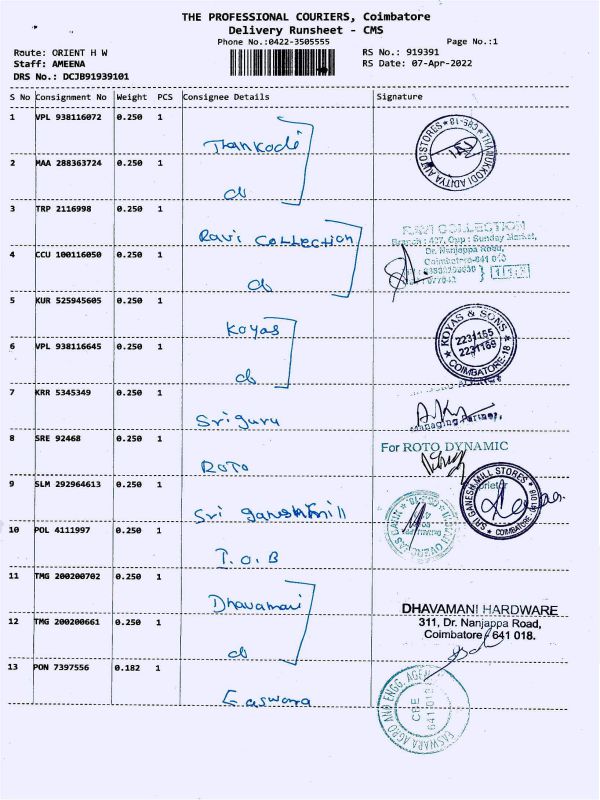 THE PROFESSIONAL COURIERS, Coimbatore
Delivery Runsheet - CMS
Phone No.:0422-3505555
Page No.:1
Route: ORIENT H W
RS No.: 919391
Staff: AMEENA
RS Date: 07-Apr-2022
DRS No.: DCJB91939101
S No Consignment No Weight PCS Consignee Details Signature
1 VPL 938116072 0.250 1 Thankodi
THANUKKODI ADITYA AUTO STORES * CBS-18 *
2 MAA 288363724 0.250 1 do
3 TRP 2116998 0.250 1 Ravi Collection
RAVI COLLECTION
Branch : 427, Opp : Sunday Market,
Dr. Nanjappa Road,
Coimbatore-641 018
4 CCU 100116050 0.250 1 do
5 KUR 525945605 0.250 1 Koyas
KOYAS & SONS
2231155
2231169
* COIMBATORE-18 *
6 VPL 938116645 0.250 1 do
7 KRR 5345349 0.250 1 Sriguru
Managing Partner,
8 SRE 92468 0.250 1 ROTO
For ROTO DYNAMIC
9 SLM 292964613 0.250 1 Sri ganesh mill
SRI GANESH MILL STORES
* COIMBATORE
10 POL 4111997 0.250 1 T.O.B
11 TMG 200200702 0.250 1 Dhavamani
DHAVAMANI HARDWARE
311, Dr. Nanjappa Road,
Coimbatore 641 018.
12 TMG 200200661 0.250 1 do
13 PON 7397556 0.182 1 Easwara
EASWARA AGRO AND ENGG. AGENCY
CBE
641 018